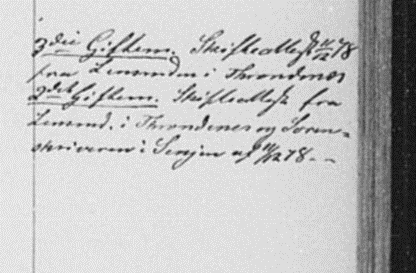 3die Giftem. Skifteattest 11/12 78
fra Lensmdn i Throndenes
2det Giftem. Skifteattest fra
Lensmd. i Throndenes og Soren-
skriveren i Senjen af 11/12 78 - -